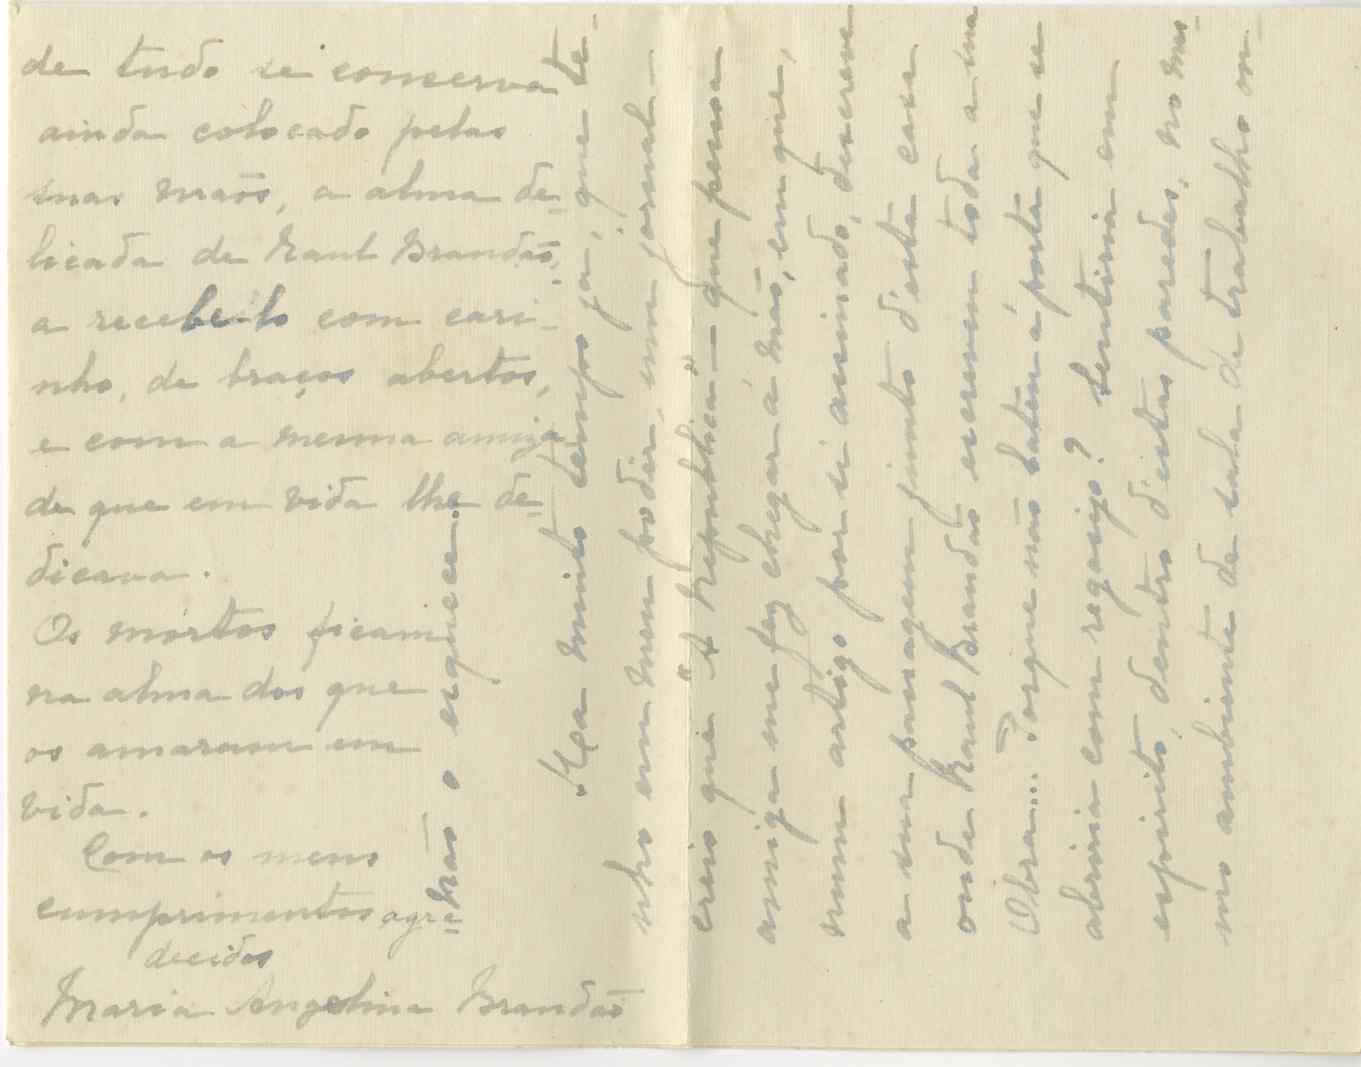 Ha muito tempo já, que te-
nho em meu podêr, um jornal —
creio que "A Republica" — que pessoa
amiga me fez chegar á mão, em que,
num artigo por si assinado, descreve
a sua passagem junto d'esta casa
onde Raul Brandão escreveu toda a sua
Obra... Porque não bateu á porta que se
abriria com regosijo? Sentiria em
espirito, dentro d'estas paredes, no mes-
mo ambiente da sala de trabalho on-
de tudo se conserva
ainda colocado pelas
suas mãos, a alma de-
licada de Raul Brandão,
a recebe-lo com cari-
nho, de braços abertos,
e com a mesma amiza
de que em vida lhe de-
dicava.
Os mortos ficam
na alma dos que
os amaram em
vida.
Com os meus
cumprimentos agra-
decidos
Maria Angelina Brandão
não o esquece.